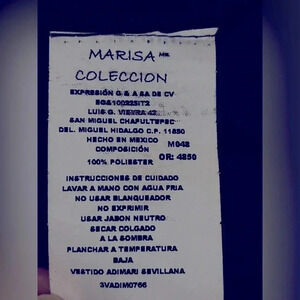 MARISA MR.
COLECCION
EXPRESIÓN G & A SA DE CV
EG&100225IT2
LUIS G. VIEYRA 42
SAN MIGUEL CHAPULTEPEC
DEL. MIGUEL HIDALGO C.P. 11850
HECHO EN MEXICO
COMPOSICIÓN M048
100% POLIESTER OR: 4850
INSTRUCCIONES DE CUIDADO
LAVAR A MANO CON AGUA FRIA
NO USAR BLANQUEADOR
NO EXPRIMIR
USAR JABON NEUTRO
SECAR COLGADO
A LA SOMBRA
PLANCHAR A TEMPERATURA
BAJA
VESTIDO ADIMARI SEVILLANA
3VADIM0766